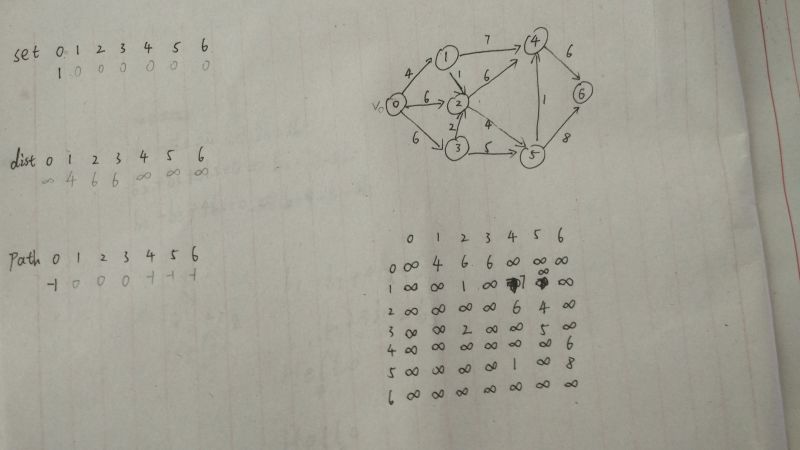 set 0 1 2 3 4 5 6
1 0 0 0 0 0 0
dist 0 1 2 3 4 5 6
∞ 4 6 6 ∞ ∞ ∞
Path 0 1 2 3 4 5 6
-1 0 0 0 -1 -1 -1
7
1
4
4
6
1
6
6
V₀ 0
6
2
1
6
6
2
4
8
3
5
5
0 1 2 3 4 5 6
0 ∞ 4 6 6 ∞ ∞ ∞
1 ∞ ∞ 1 ∞ 7 ∞ ∞
2 ∞ ∞ ∞ ∞ 6 4 ∞
3 ∞ ∞ 2 ∞ ∞ 5 ∞
4 ∞ ∞ ∞ ∞ ∞ ∞ 6
5 ∞ ∞ ∞ ∞ 1 ∞ 8
6 ∞ ∞ ∞ ∞ ∞ ∞ ∞